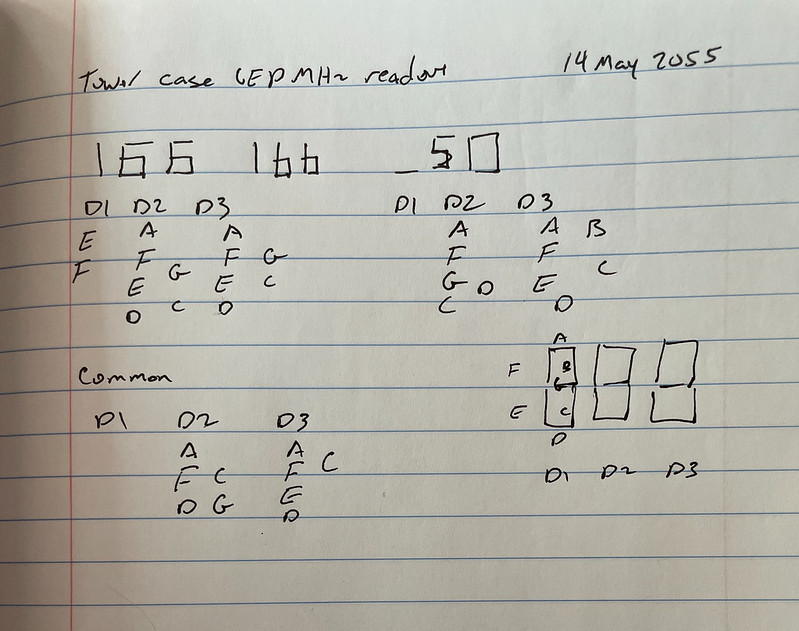 Tower case LED MHz readout 14 May 2055
166 166 _50
D1 D2 D3 D1 D2 D3
E A A A A B
F F G F G F F C
E C E C G D E
D D C D
A
Common F B
G
E C
D1 D2 D3 D
A A C
F C F D1 D2 D3
D G E
D